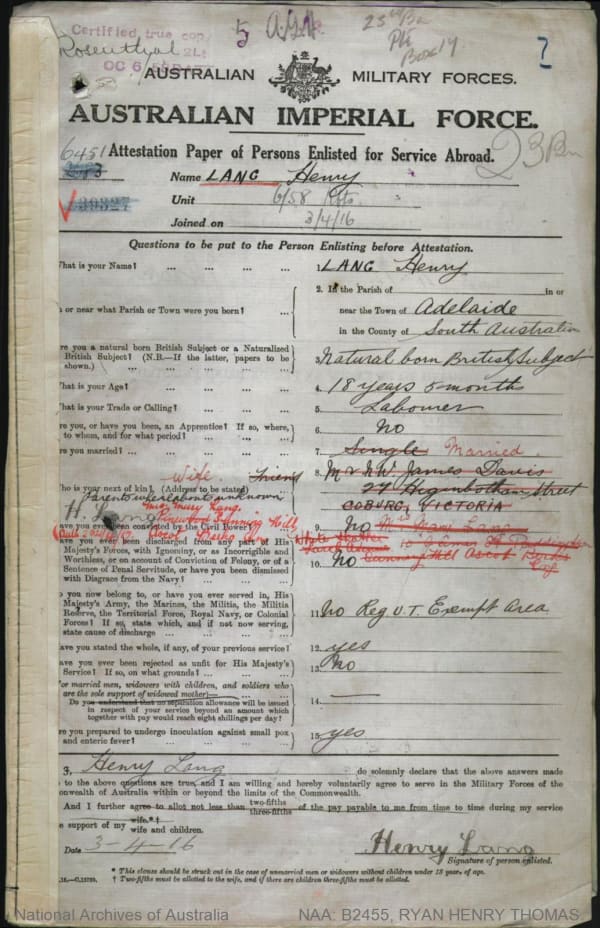 Certified true copy
Rosenthal 2Lt
OC 6
5 A.G.H.
23rd Bn
Pte
Box 14
7
AUSTRALIAN MILITARY FORCES.
AUSTRALIAN IMPERIAL FORCE.
6451 Attestation Paper of Persons Enlisted for Service Abroad.
23 Bn
Name LANG Henry
39327
Unit 6/58 Rfts
Joined on 3/4/16
Questions to be put to the Person Enlisting before Attestation.
hat is your Name? ... ... ... ... 1. LANG Henry
2. In the Parish of in or
n or near what Parish or Town were you born? ... near the Town of Adelaide
in the County of South Australia
re you a natural born British Subject or a Naturalized
British Subject? (N.B.—If the latter, papers to be
shown.) ... ... ... ... 3. Natural born British Subject
hat is your Age? ... ... ... ... 4. 18 years 5 months
hat is your Trade or Calling? ... ... ... 5. Labourer
re you, or have you been, an Apprentice? If so, where,
to whom, and for what period? ... ... ... 6. No
re you married? ... ... ... ... 7. Single Married.
wife. Friend 8. Mr W. James Davis
ho is your next of kin? (Address to be stated) 27 Higinbotham Street
Parents whereabouts unknown COBURG, VICTORIA
H. Lang Mrs Mary Lang.
Sunning Hill
Ascot Berks
ave you ever been convicted by the Civil Power? 9. No
ave you ever been discharged from any part of His
Majesty's Forces, with Ignominy, or as Incorrigible and
Worthless, or on account of Conviction of Felony, or of a
Sentence of Penal Servitude, or have you been dismissed
with Disgrace from the Navy? ... ... ... 10. No Sunning Hill Ascot Berks
o you now belong to, or have you ever served in, His
Majesty's Army, the Marines, the Militia, the Militia
Reserve, the Territorial Force, Royal Navy, or Colonial
Forces? If so, state which, and if not now serving,
state cause of discharge ... ... ... 11. No Reg U.T. Exempt Area
ave you stated the whole, if any, of your previous service? 12. yes
ave you ever been rejected as unfit for His Majesty's
Service? If so, on what grounds? ... ... 13. No
or married men, widowers with children, and soldiers who
are the sole support of widowed mother)—
Do you understand that no separation allowance will be issued
in respect of your service beyond an amount which
together with pay would reach eight shillings per day? 14.
re you prepared to undergo inoculation against small pox
and enteric fever? ... ... ... ... 15. yes
I, Henry Lang do solemnly declare that the above answers made
to the above questions are true, and I am willing and hereby voluntarily agree to serve in the Military Forces of the
onwealth of Australia within or beyond the limits of the Commonwealth.
And I further agree to allot not less than two-fifths three-fifths of the pay payable to me from time to time during my service
e support of my wife.*† wife and children.
Date 3-4-16
Henry Lang
Signature of person enlisted.
* This clause should be struck out in the case of unmarried men or widowers without children under 18 years of age.
† Two-fifths must be allotted to the wife, and if there are children three-fifths must be allotted.
National Archives of Australia NAA: B2455, RYAN HENRY THOMAS